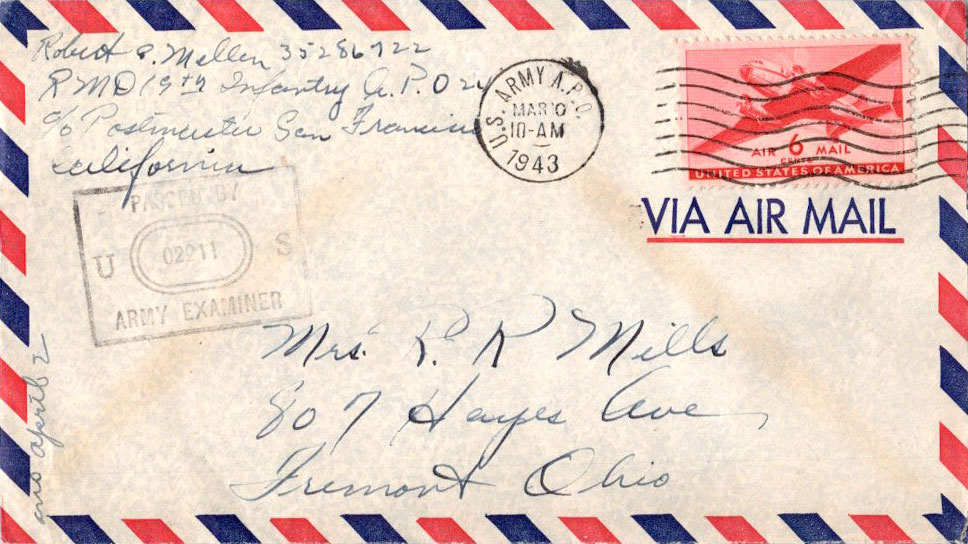 Robert C. Mellen 35286722
R M D 19th Infantry A.P.O 24
c/o Postmaster San Francisco
California
U.S. ARMY A.P.O.
MAR 0
10-AM
1943
AIR 6 MAIL
CENTS
UNITED STATES OF AMERICA
VIA AIR MAIL
PASSED BY
U 02211 S
ARMY EXAMINER
Mrs. R. R Mills
807 Hayes Ave,
Fremont Ohio
ans april 2